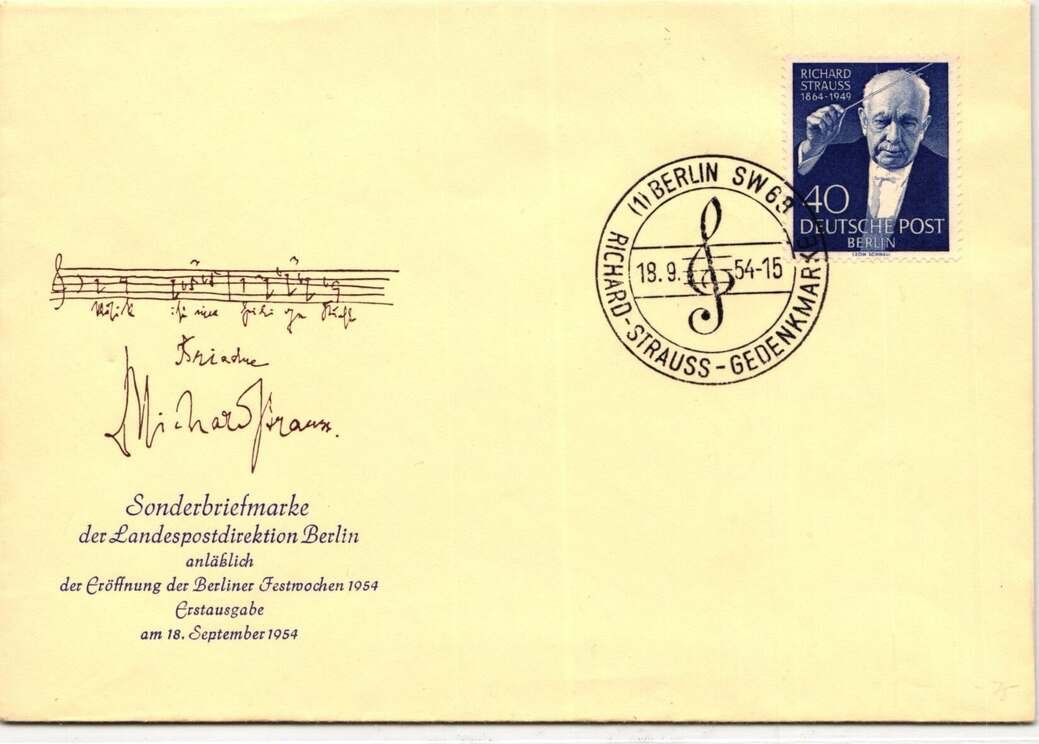 RICHARD
STRAUSS
1864-1949
40
DEUTSCHE POST
BERLIN
LEON SCHNELL
(1) BERLIN SW 68
18.9. 54-15
RICHARD-STRAUSS-GEDENKMARKE
Musik ist eine heilige Kunst
Ariadne
Richard Strauss.
Sonderbriefmarke
der Landespostdirektion Berlin
anläßlich
der Eröffnung der Berliner Festwochen 1954
Erstausgabe
am 18. September 1954